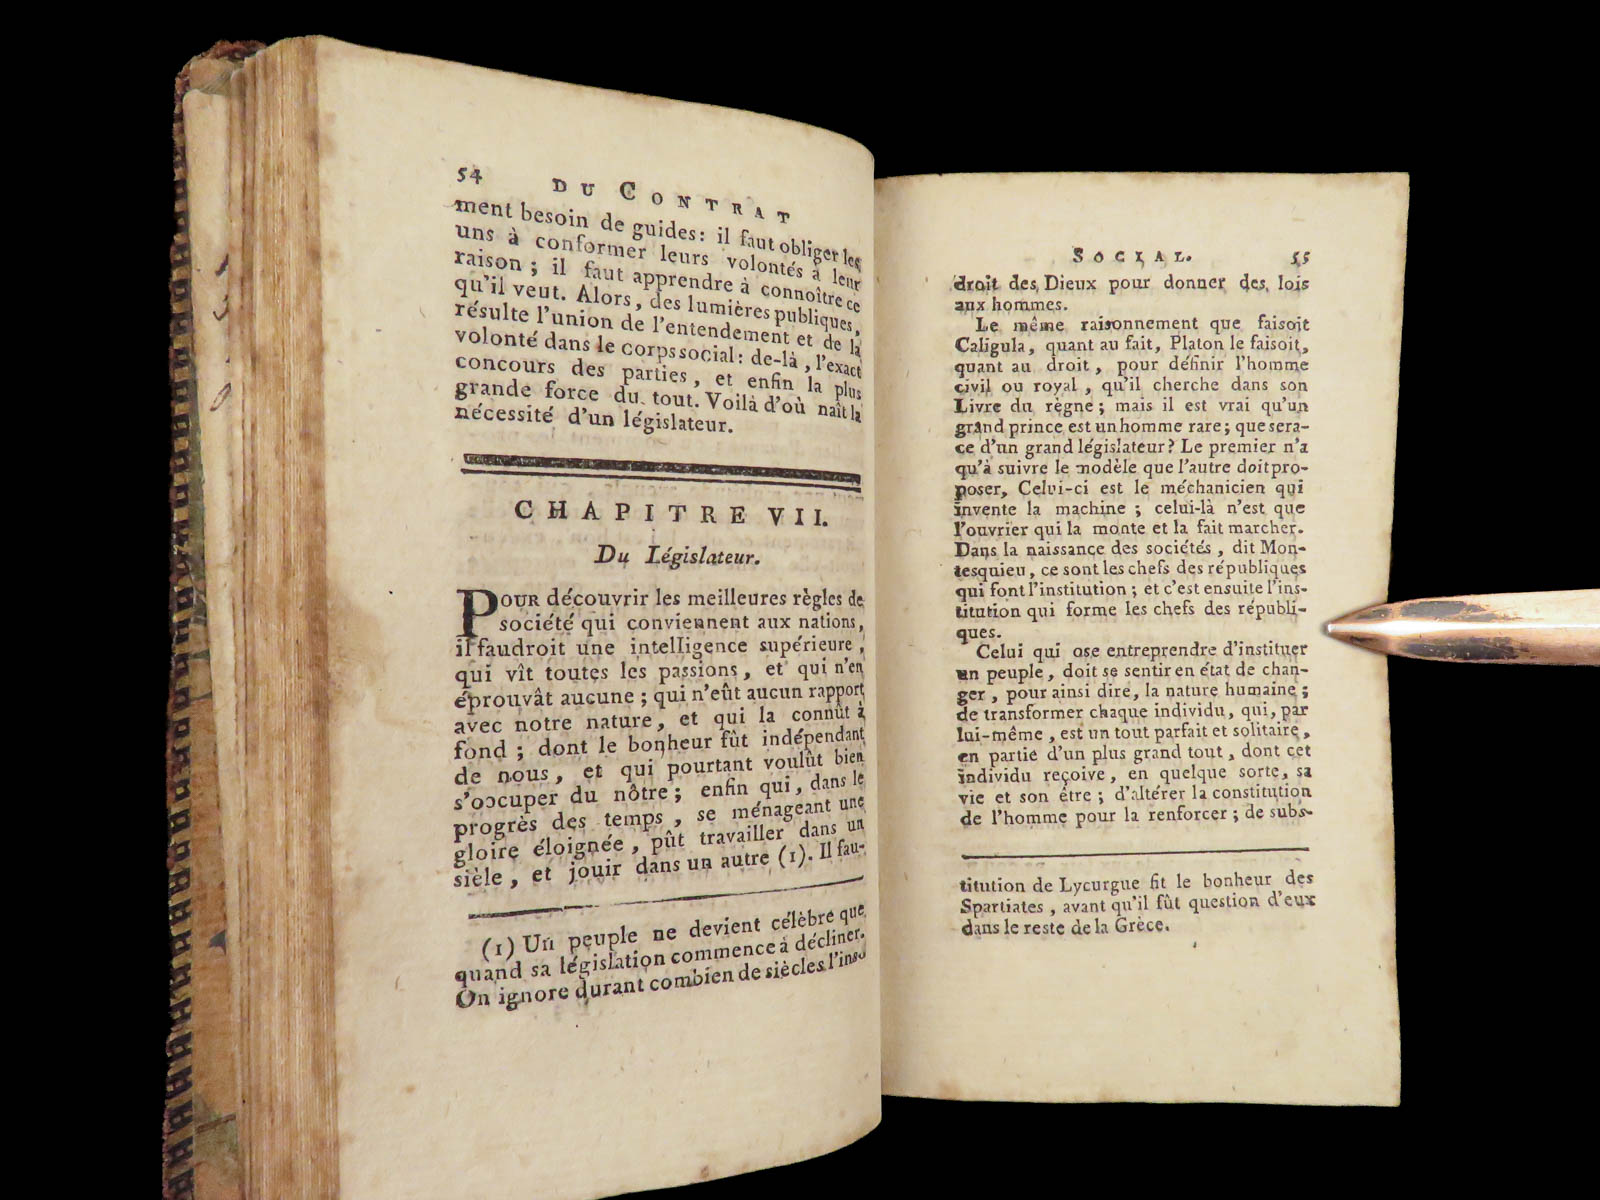 54 DU CONTRAT
ment besoin de guides: il faut obliger les
uns à conformer leurs volontés à leur
raison ; il faut apprendre à connoître ce
qu'il veut. Alors, des lumières publiques,
résulte l'union de l'entendement et de la
volonté dans le corps social: de-là, l'exact
concours des parties, et enfin la plus
grande force du tout. Voilà d'où naît la
nécessité d'un législateur.
CHAPITRE VII.
Du Législateur.
POUR découvrir les meilleures règles de
société qui conviennent aux nations,
il faudroit une intelligence supérieure,
qui vît toutes les passions, et qui n'en
éprouvât aucune ; qui n'eût aucun rapport
avec notre nature, et qui la connût à
fond ; dont le bonheur fût indépendant
de nous, et qui pourtant voulût bien
s'occuper du nôtre ; enfin qui, dans le
progrès des temps, se ménageant une
gloire éloignée, pût travailler dans un
sièle, et jouir dans un autre (1). Il fau-
(1) Un peuple ne devient célèbre que
quand sa législation commence à décliner.
On ignore durant combien de siècles l'ins-
SOCIAL. 55
droit des Dieux pour donner des lois
aux hommes.
Le même raisonnement que faisoit
Caligula, quant au fait, Platon le faisoit,
quant au droit, pour définir l'homme
civil ou royal, qu'il cherche dans son
Livre du règne ; mais il est vrai qu'un
grand prince est un homme rare ; que sera-
ce d'un grand législateur ? Le premier n'a
qu'à suivre le modèle que l'autre doit pro-
poser, Celui-ci est le méchanicien qui
invente la machine ; celui-là n'est que
l'ouvrier qui la monte et la fait marcher.
Dans la naissance des sociétés, dit Mon-
tesquieu, ce sont les chefs des républiques
qui font l'institution ; et c'est ensuite l'ins-
titution qui forme les chefs des républi-
ques.
Celui qui ose entreprendre d'instituer
un peuple, doit se sentir en état de chan-
ger, pour ainsi dire, la nature humaine ;
de transformer chaque individu, qui, par
lui-même, est un tout parfait et solitaire,
en partie d'un plus grand tout, dont cet
individu reçoive, en quelque sorte, sa
vie et son être ; d'altérer la constitution
de l'homme pour la renforcer ; de subs-
titution de Lycurgue fit le bonheur des
Spartiates, avant qu'il fût question d'eux
dans le reste de la Grèce.